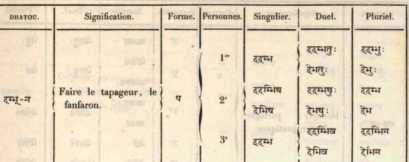 DHATOC. Signification. Forme. Personnes. Singulier. Duel. Pluriel.
ददम्भतुः ददम्भुः
1re ददम्भ
देभतुः देभुः
Faire le tapageur, le प 2e ददम्भिथ ददम्भथुः ददम्भ
fanfaron. देभिथ देभथुः देभ
ददम्भिव ददम्भिम
3e ददम्भ
देभिव देभिम